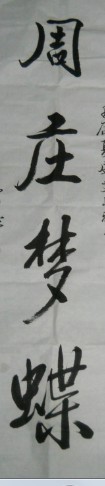 周庄梦蝶